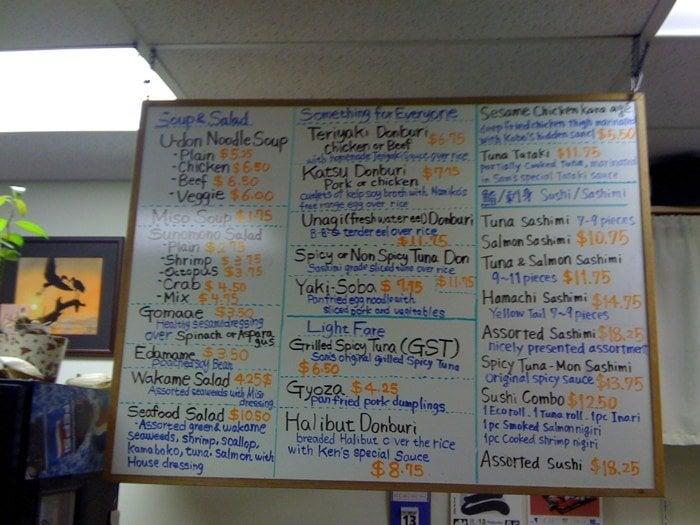 Soup & Salad
Udon Noodle Soup
- Plain $5.25
- Chicken $6.50
- Beef $6.50
- Veggie $6.00
Miso Soup $1.75
Sunomono Salad
- Plain $2.75
- Shrimp $3.75
- Octopus $3.75
- Crab $4.50
- Mix $4.75
Gomaae $3.50
Healthy sesame dressing
over Spinach or Aspara
gus
Edamame $3.50
poached soy Bean
Wakame Salad 4.25$
Assorted seaweeds with Miso
dressing
Seafood Salad $10.50
- Assorted green & wakame
seaweeds, shrimp, scallop,
kamaboko, tuna, salmon with
House dressing
Something for Everyone
Teriyaki Donburi $6.75
chicken or Beef
with homemade Teriyaki sauce over rice
Katsu Donburi $7.75
Pork or chicken
cutlets of kelp soy broth with Namiko's
free range egg over rice
Unagi (freshwater eel) Donburi
B-B-Q tender eel over rice
$11.75
Spicy or Non Spicy Tuna Don
Sashimi grade sliced tuna over rice
$11.75
Yaki-Soba $7.75
Pan fried egg noodle with
sliced pork and vegitables
Light Fare
Grilled Spicy Tuna (GST)
Sam's original grilled Spicy Tuna
$6.50
Gyoza $4.25
pan fried pork dumplings
Halibut Donburi
breaded Halibut over the rice
with Ken's special Sauce
$8.75
Sesame Chicken kara age
deep fried chicken thigh marinated
with Kobo's hidden sauce $5.50
Tuna Tataki $11.75
partially cooked tuna, marinated
in Sam's special Tataki sauce
鮨/刺身 Sushi/Sashimi
Tuna Sashimi 7-9 pieces
Salmon Sashimi $10.75
Tuna & Salmon Sashimi
9~11 pieces $11.75
Hamachi Sashimi $14.75
Yellow Tail 7-9 pieces
Assorted Sashimi $18.25
nicely presented assortment
Spicy Tuna-Mon Sashimi
original spicy sauce $13.75
Sushi Combo $12.50
1 Eco roll. 1 Tuna roll. 1pc Inari
1pc Smoked Salmon nigiri
1pc Cooked shrimp nigiri
Assorted Sushi $18.25
13